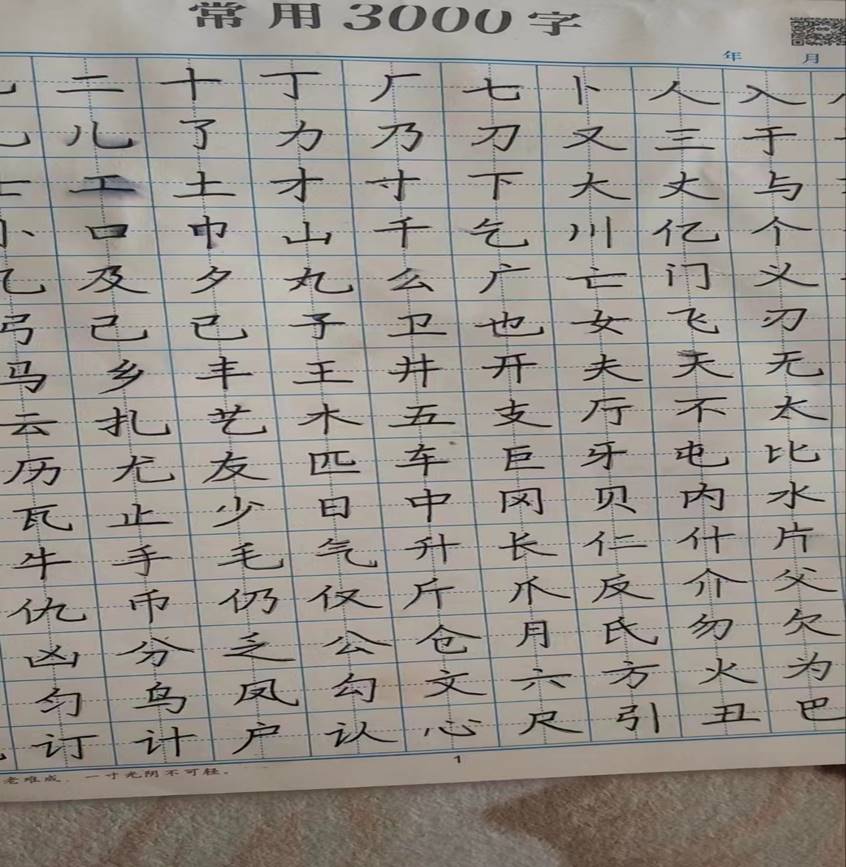 常用3000字
年 月
二 十 丁 厂 七 卜 人 入
儿 了 力 乃 刀 又 三 于
工 土 才 寸 下 大 丈 与
小 口 巾 山 千 乞 川 亿 个
及 夕 丸 么 广 亡 门 义
弓 己 已 子 卫 也 女 飞 刃
马 乡 丰 王 井 开 夫 天 无
云 扎 艺 木 五 支 厅 不 太
历 尤 友 匹 车 巨 牙 屯 比
瓦 止 少 日 中 冈 贝 内 水
牛 手 毛 气 升 长 仁 什 片
仇 币 仍 仅 斤 爪 反 介 父
凶 分 乏 公 仓 月 氏 勿 欠
匀 鸟 凤 勾 文 六 方 火 为
订 计 户 认 心 尺 引 丑 巴
老难成，一寸光阴不可轻。
1